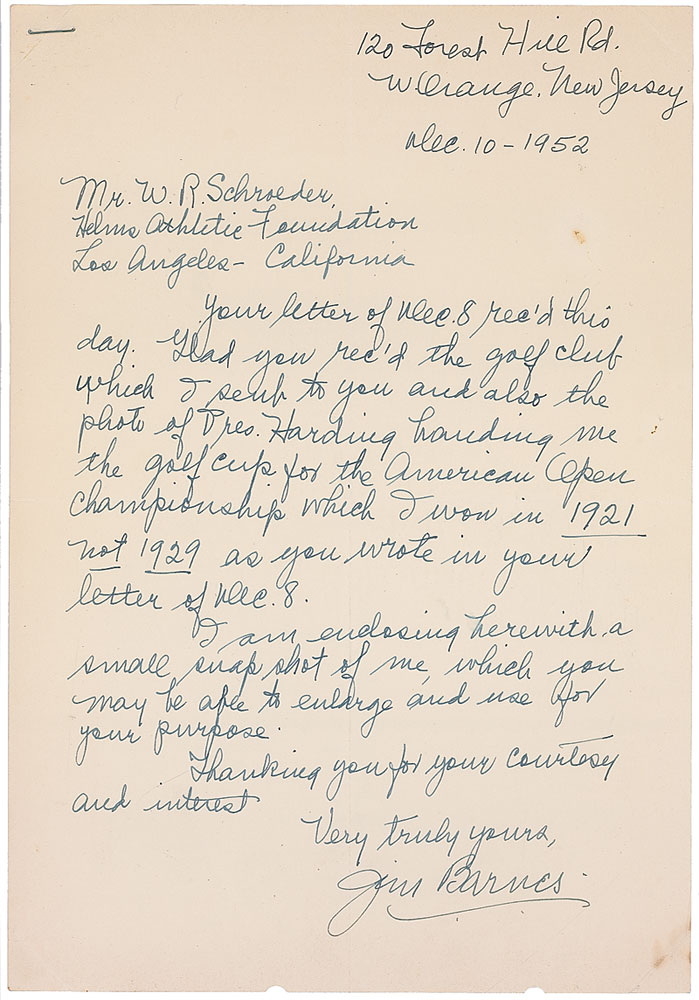 120 Forest Hill Rd.
W Orange. New Jersey
Dec. 10 - 1952
Mr. W. R. Schroeder,
Helms Athletic Foundation
Los Angeles - California
Your letter of Dec. 8 rec'd this
day. Glad you rec'd the golf club
which I sent to you and also the
photo of Pres. Harding handing me
the golf cup for the American Open
Championship which I won in 1921
not 1929 as you wrote in your
letter of Dec. 8.
I am enclosing herewith a
small snap shot of me, which you
may be able to enlarge and use for
your purpose.
Thanking you for your courtesy
and interest
Very truly yours,
Jim Barnes.